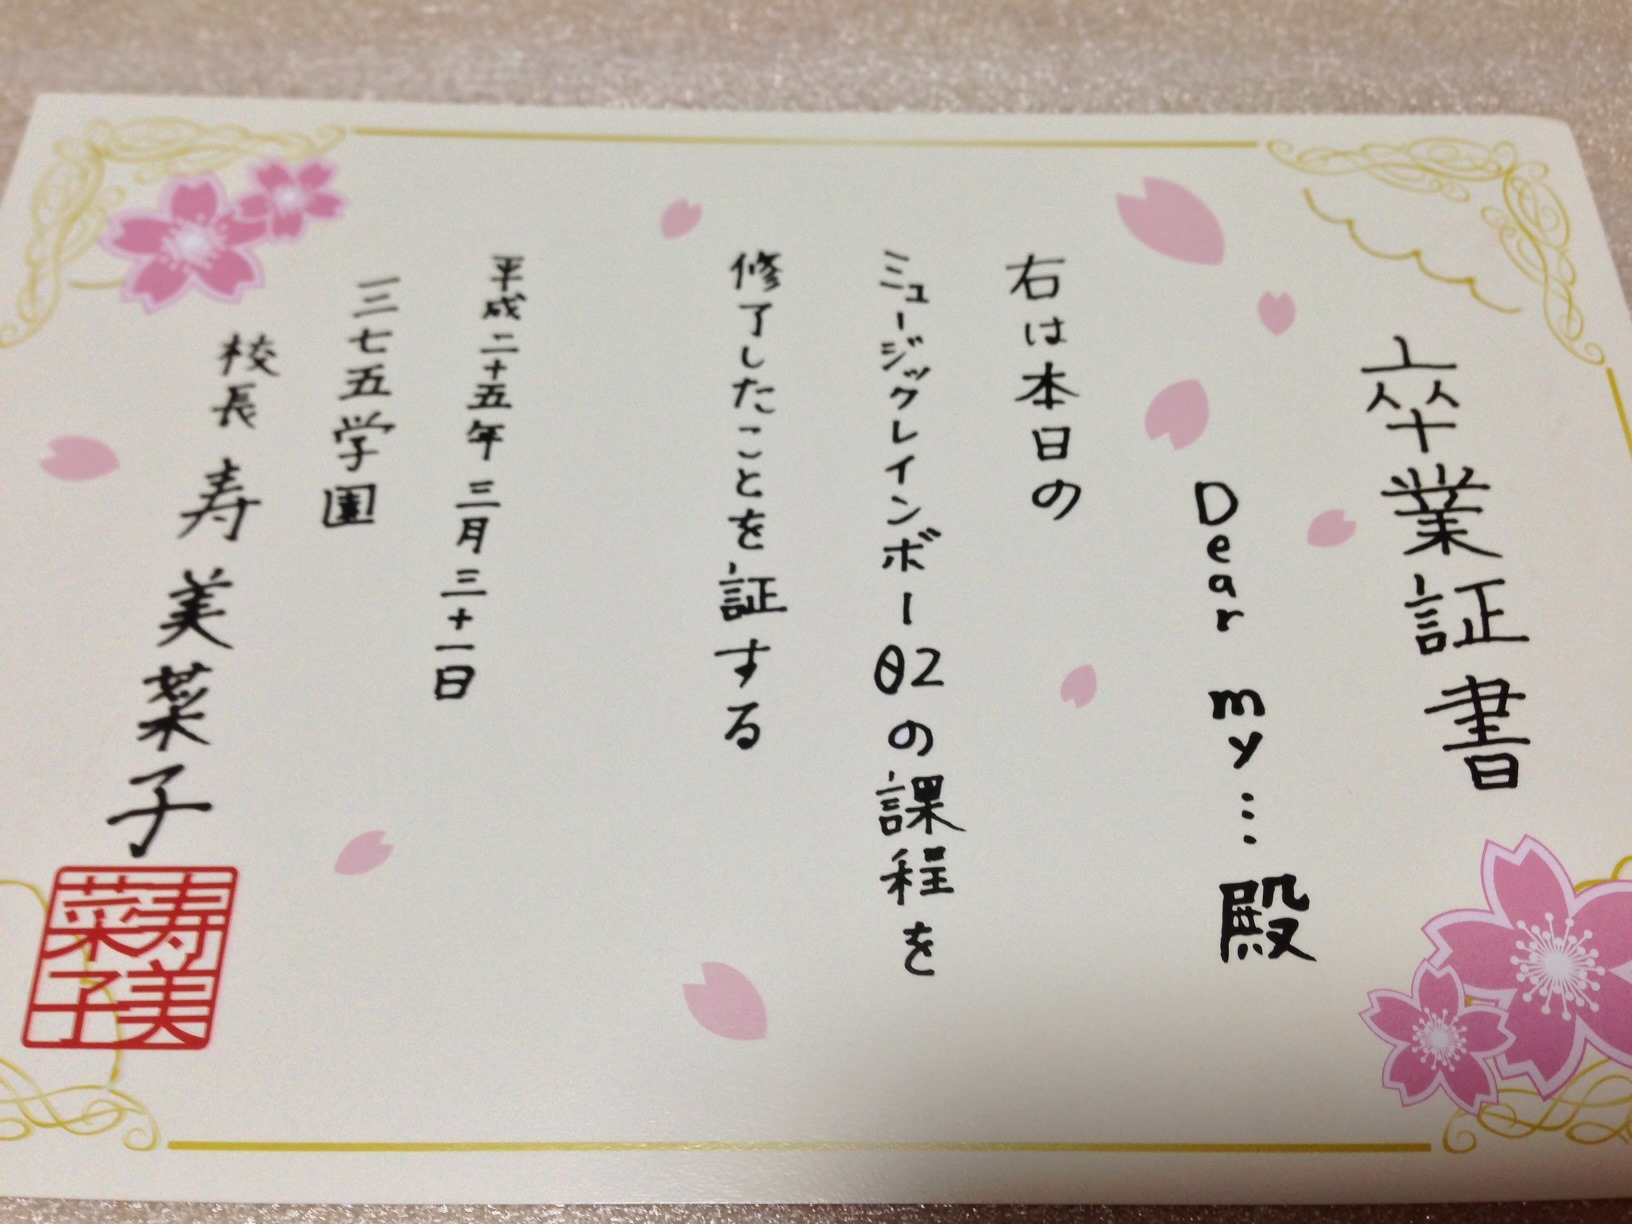 卒業証書
Dear my… 殿
右は本日の
ミュージックレインボー02の課程を
修了したことを証する
平成二十五年 三月 三十一日
三七五学園
校長 寿 美菜子
寿美菜子